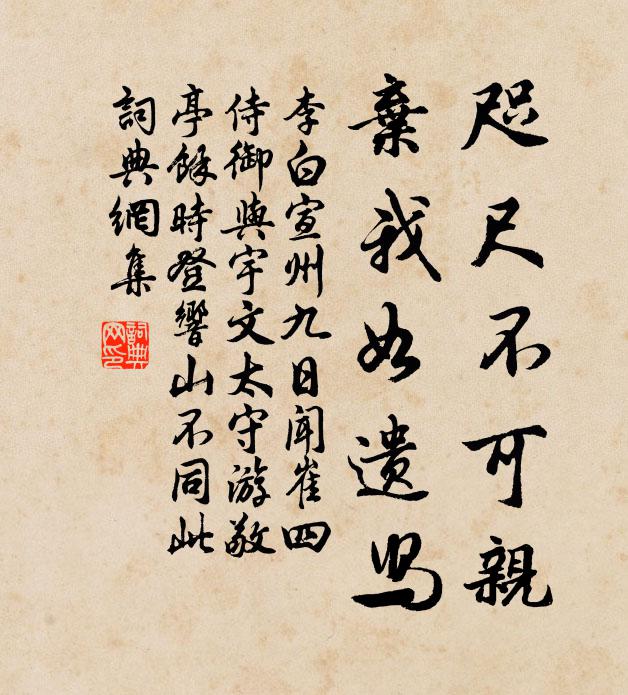 咫尺不可親
棄我如遺舄
李白宣州九日聞崔四
侍御與宇文太守游敬
亭餘時登響山不同此
詞典網集
詞典
网印